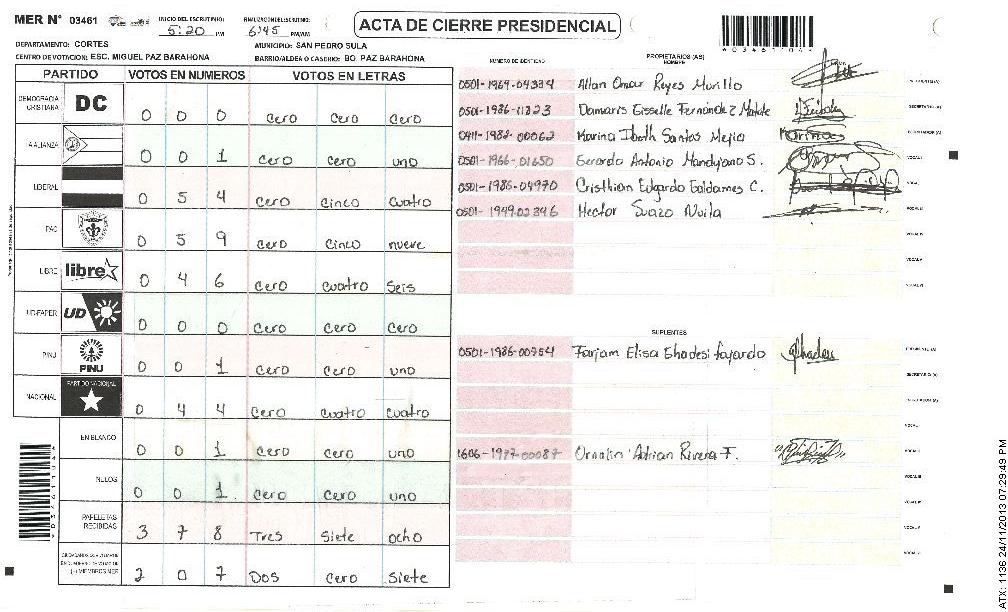 MER N° 03461
INICIO DEL ESCRUTINIO:
5:20 PM
FINALIZACION DEL ESCRUTINIO:
6:45 PM/AM
ACTA DE CIERRE PRESIDENCIAL
DEPARTAMENTO: CORTES
MUNICIPIO: SAN PEDRO SULA
CENTRO DE VOTACION: ESC. MIGUEL PAZ BARAHONA
BARRIO/ALDEA O CASERIO: BO. PAZ BARAHONA
PARTIDO VOTOS EN NUMEROS VOTOS EN LETRAS
DEMOCRACIA CRISTIANA DC 0 0 0 Cero Cero Cero
A ALIANZA 0 0 1 Cero Cero uno
LIBERAL 0 5 4 Cero Cinco Cuatro
PAC 0 5 9 Cero Cinco nueve
LIBRE libre 0 4 6 Cero Cuatro Seis
UD-FAPER UD 0 0 0 Cero Cero Cero
PINU PINU 0 0 1 Cero Cero uno
NACIONAL PARTIDO NACIONAL 0 4 4 Cero Cuatro Cuatro
EN BLANCO 0 0 1 Cero Cero uno
NULOS 0 0 1 Cero Cero uno
PAPELETAS RECIBIDAS 3 7 8 Tres Siete ocho
2 0 7 Dos Cero Siete
NUMERO DE IDENTIDAD
PROPIETARIOS (AS)
NOMBRE
0501-1969-04334 Allan Omar Reyes Murillo
0501-1986-11823 Damaris Gisselle Fernández
0411-1982-00062 Karina Ibeth Santos Mejia
0501-1966-01650 Gerardo Antonio Mandujano S.
0501-1985-04970 Cristhian Edgardo Galdames C.
0501-1949-02346 Hector Suazo Avila
SUPLENTES
0501-1986-00954 Farjam Elisa Ghadesi fajardo
1606-1977-00087 Adrian Rivera F.
ATX: 1136 24/11/2013 07:29:49 PM